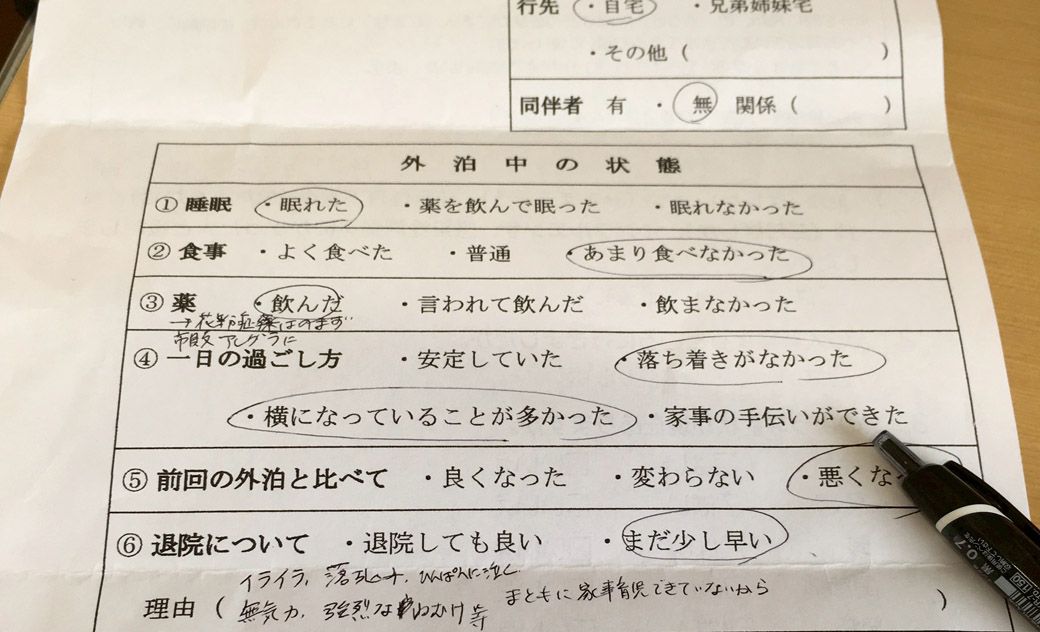 行先 ・自宅 ・兄弟姉妹宅
・その他( )
同伴者 有 ・ 無 関係( )
外泊中の状態
① 睡眠 ・眠れた ・薬を飲んで眠った ・眠れなかった
② 食事 ・よく食べた ・普通 ・あまり食べなかった
③ 薬 ・飲んだ ・言われて飲んだ ・飲まなかった
→花粉症薬はのまず
市販アレグラに
④ 一日の過ごし方 ・安定していた ・落ち着きがなかった
・横になっていることが多かった ・家事の手伝いができた
⑤ 前回の外泊と比べて ・良くなった ・変わらない ・悪くな
⑥ 退院について ・退院しても良い ・まだ少し早い
イライラ、落ちこみ、ひんぱんに泣く
理由( 無気力、強烈なねむけ等 まともに家事育児できていないから )
0.7